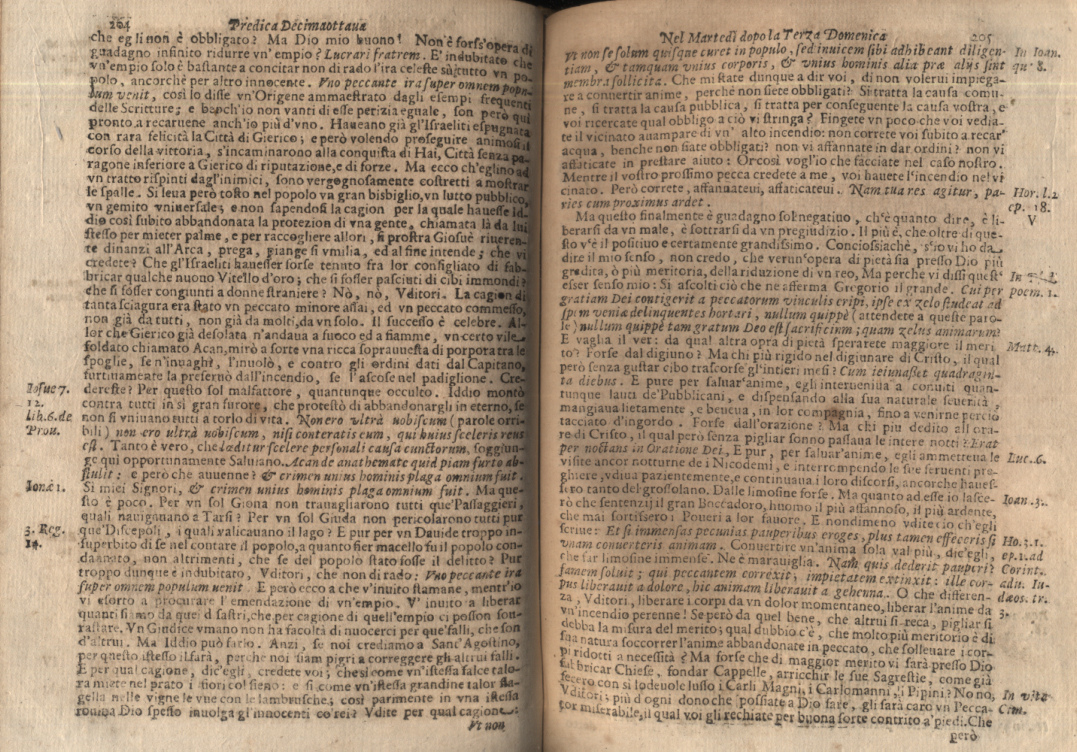 204
Predica Decimaottaua
che egli non è obbligato? Ma Dio mio buono! Non è fors'opera di
guadagno infinito ridurre vn'empio? Lucrari fratrem. E' indubitato che
vn'empio solo è bastante a concitar non di rado l'ira celeste su tutto vn po-
polo, ancorchè per altro innocente. Vno peccante ira super omnem popu-
lum venit, così lo disse vn'Origene ammaestrato dagli esempi frequenti
delle Scritture; e bench'io non vanti di esse perizia eguale, son però quì
pronto a recaruene anch'io più d'vno. Haueano già gl'Israeliti espugnata
con rara felicità la Città di Gierico; e però volendo proseguire animosi il
corso della vittoria, s'incaminarono alla conquista di Hai, Città senza pa-
ragone inferiore a Gierico di riputazione, e di forze. Ma ecco ch'eglino ad
vn tratto rispinti dagl'inimici, sono vergognosamente costretti a mostrar
le spalle. Si leua però tosto nel popolo vn gran bisbiglio, vn lutto pubblico,
vn gemito vniuersale; e non sapendosi la cagion per la quale hauesse Id-
dio così subito abbandonata la protezion di vna gente, chiamata là da lui
stesso per mieter palme, e per raccogliere allori, si prostra Giosuè riueren-
te dinanzi all'Arca, prega, piange si vmilia, ed al fine intende; che vi
credete? Che gl'Israeliti hauesser forse tenuto fra lor consigliato di fab-
bricar qualche nuouo Vitello d'oro; che si fosser pasciuti di cibi immondi?
che si fosser congiunti a donne straniere? Nò, nò, Vditori. La cagion di
tanta sciagura era stato vn peccato minore assai, ed vn peccato commesso,
non già da tutti, non già da molti, da vn solo. Il successo è celebre. Al-
lor che Gierico già desolata n'andaua a fuoco ed a fiamme, vn certo vile
soldato chiamato Acan, mirò a sorte vna ricca soprauuesta di porpora tra le
spoglie, se n'inuaghì, l'inuolò, e contro gli ordini dati dal Capitano,
furtiuamente la preseruò dall'incendio, se l'ascose nel padiglione. Cre-
dereste? Per questo sol malfattore, quantunque occulto. Iddio montò
contra tutti in sì gran furore, che protestò di abbandonargli in eterno, se
non si vniuano tutti a torlo di vita. Non ero ultrà uobiscum (parole orri-
bili) non ero ultrà uobiscum, nisi conteratis eum, qui huius sceleris reus
est. Tanto è vero, che læditur scelere personali causa cunctorum, soggiun-
ge quì opportunamente Saluiano. Acan de anathemate quid piam furto ab-
stulit: e però che auuenne? & crimen unius hominis plaga omnium fuit.
Si miei Signori, & crimen unius hominis plaga omnium fuit. Ma que-
sto è poco. Per vn sol Giona non trauagliarono tutti que' Passaggieri,
quali nauigauano a Tarsi? Per vn sol Giuda non pericolarono tutti pur
que' Discepoli, i quali valicauano il lago? E pur per vn Dauide troppo in-
superbito di se nel contare il popolo, a quanto fier macello fu il popolo con-
dannato, non altrimenti, che se del popolo stato fosse il delitto? Pur
troppo dunque è indubitato, Vditori, che non di rado: Vno peccante ira
super omnem populum uenit. E però ecco a che v'inuito stamane, mentr'io
vi esorto a procurare l'emendazione di vn'empio. V'inuito a liberar
quanti siamo da que' disastri, che per cagione di quell'empio ci posson sou-
rastare. Vn Giudice vmano non ha facoltà di nuocerci per que' falli, che son
d'altrui. Ma Iddio può farlo. Anzi, se noi crediamo a Sant'Agostino,
per questo istesso il farà, perche noi siam pigri a correggere gli altrui falli.
E per qual cagione, dic'egli, credete voi; che sì come vn'istessa falce talo-
ra miete nel prato i fiori col fieno: e sì come vn'istessa grandine talor fla-
gella nelle vigne le vue con le lambrusche; così parimente in vna istessa
rouina Dio spesso inuolga gl'innocenti co' rei? Vdite per qual cagione:
Vt non
Iosue 7.
12.
lib. 6. de
Prou.
Ionæ 1.
3. Reg.
14.
Nel Martedì dopo la Terza Domenica
205
Vt non se solum quisque curet in populo, sed inuicem sibi adhibeant diligen-
tiam, & tamquam vnius corporis, & vnius hominis alia præ alijs sint
membra sollicita. Che mi state dunque a dir voi, di non volerui impiega-
re a conuertir anime, perchè non siete obbligati? Si tratta la causa comu-
ne, si tratta la causa pubblica, si tratta per conseguente la causa vostra, e
voi ricercate qual obbligo a ciò vi stringa? Fingete vn poco che voi vedia-
te il vicinato auampare di vn' alto incendio: non correte voi subito a recar'
acqua, benche non siate obbligati? non vi affannate in dar ordini? non vi
affaticate in prestare aiuto? Or così vogl'io che facciate nel caso nostro.
Mentre il vostro prossimo pecca credete a me, voi hauete l'incendio nel vi
cinato. Però correte, affannateui, affaticateui. Nam tua res agitur, pa-
ries cum proximus ardet.
Ma questo finalmente è guadagno sol negatiuo, ch'è quanto dire, è li-
berarsi da vn male, è sottrarsi da vn pregiudizio. Il più è, che oltre di que-
sto v'è il positiuo e certamente grandissimo. Conciossiachè, s'io vi ho da
dire il mio senso, non credo, che verun'opera di pietà sia presso Dio più
gradita, ò più meritoria, della riduzione di vn reo, Ma perche vi dissi quest'
esser senso mio: Si ascolti ciò che ne afferma Gregorio il grande. Cui per
gratiam Dei contigerit a peccatorum vinculis eripi, ipse ex zelo studeat ad
spem veniæ delinquentes hortari, nullum quippè (attendete a queste paro-
le) nullum quippè tam gratum Deo est sacrificium; quam zelus animarum?
E vaglia il ver: da qual altra opra di pietà sperarete maggiore il meri
to? Forse dal digiuno? Ma chi più rigido nel digiunare di Cristo, il qual
però senza gustar cibo trascorse gl'intieri mesi? Cum ieiunasset quadragin-
ta diebus. E pure per saluar'anime, egli interueniua a conuiti quan-
tunque lauti de' Pubblicani, e dispensando alla sua naturale seuerità,
mangiaua lietamente, e beueua, in lor compagnia, fino a venirne perciò
tacciato d'ingordo. Forse dall'orazione? Ma chi più dedito all'ora-
re di Cristo, il qual però senza pigliar sonno passaua le intere notti? Erat
per noctans in Oratione Dei, E pur, per saluar'anime, egli ammetteua le
visite ancor notturne de i Nicodemi, e interrompendo le sue feruenti pre-
ghiere, vdiua pazientemente, e continuaua i loro discorsi, ancorche haues-
sero tanto del grossolano. Dalle limosine forse. Ma quanto ad esse io lasce-
rò che sentenzij il gran Boccadoro, huomo il più affannoso, il più ardente,
che mai sortissero i Poueri a lor fauore. E nondimeno vdite ciò ch'egli
scriue: Et si immensas pecunias pauperibus eroges, plus tamen effeceris si
vnam conuerteris animam. Conuertire vn'anima sola val più, dic'egli,
che far limosine immense. Ne è marauiglia. Nam quis dederit pauperi?
famem soluit; qui peccantem correxit, impietatem extinxit: ille cor-
pus liberauit a dolore, hic animam liberauit a gehenna. O che differen-
za, Vditori, liberare i corpi da vn dolor momentaneo, liberar l'anime da
vn'incendio perenne! Se però da quel bene, che altrui si reca, pigliar si
debba la misura del merito; qual dubbio c'è, che molto più meritorio è di
sua natura soccorrer l'anime abbandonate in peccato, che solleuare i cor-
pi ridotti a necessità? Ma forse che di maggior merito vi sarà presso Dio
fabbricar Chiese, fondar Cappelle, arricchir le sue Sagrestie, come già
fecero con sì lodeuole lusso i Carli Magni, i Carlomanni, i Pipini? No no,
Vditori; più d'ogni dono che possiate a Dio fare, gli sarà caro vn Pecca-
tor miserabile, il qual voi gli rechiate per buona sorte contrito a' piedi. Che
però
In Ioan.
qu. 8.
Hor. l. 2
ep. 18.
V
poem. 1.
Matt. 4.
Luc. 6.
Ioan. 3.
Ho. 3. 1.
ep. 1. ad
Corint.
adu. Iu-
dæos. tr.
3.
In vita
Com.